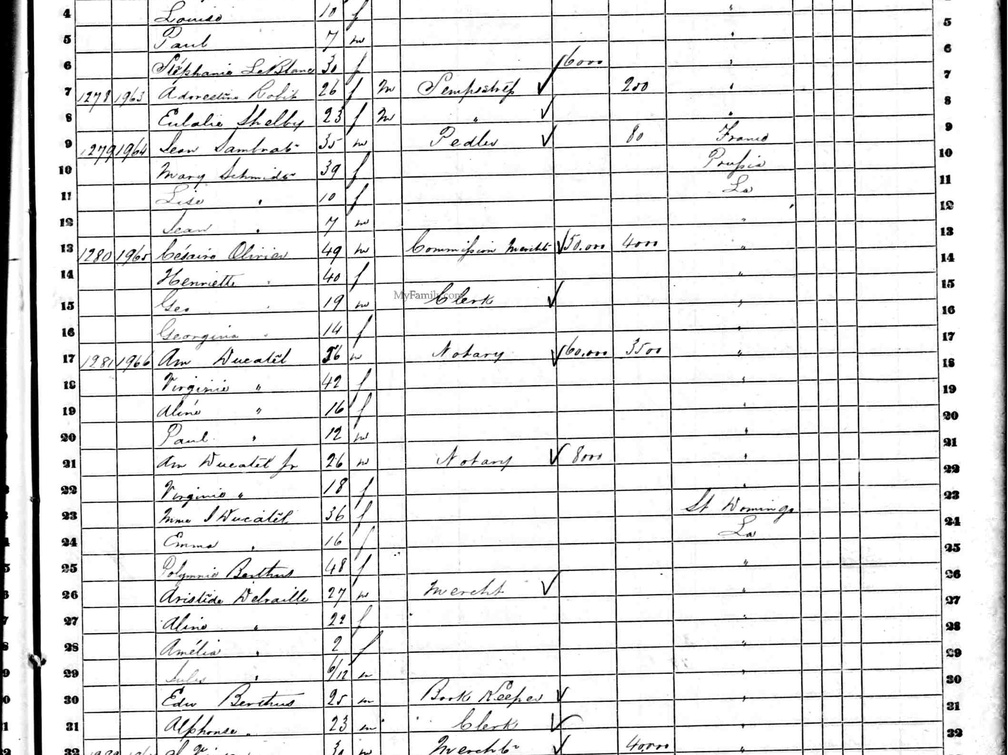 4 Louise 10 f " 5
5 Paul 7 m " 6
6 Stephanie LeBlanc 30 f 6000 " 7
7 1278 1963 26 f M Sempstress 250 " 8
8 Eulalie Shelby 23 f M " " 9
9 1279 1964 Jean 35 m Pedler 80 France 10
10 Mary Schmidt 39 f Prussia 11
11 Lise " 10 f La 12
12 Jean " 7 m " 13
13 1280 1965 Césaire Olivier 49 m Commission Mercht 50,000 4000 " 14
14 Henriette " 40 f "
15 Geo " 19 m Clerk " 16
MyFamily.com
16 Georgina " 14 f " 17
17 1281 1966 Am Ducatél 56 m Notary 60,000 3500 " 18
18 Virginie " 42 f " 19
19 Aline " 16 f " 20
20 Paul " 12 m " 21
21 Am Ducatél Jr 26 m Notary 8000 " 22
22 Virginie " 18 f " 23
23 Mme Ducatél 36 f St Domingo 24
24 Emma " 16 f La 25
25 Berthus 48 f " 26
26 Aristide 27 m Mercht " 27
27 Aline " 22 f " 28
28 Amélia " 2 f " 29
29 Jules " 6/12 m " 30
30 Edw Berthus 25 m Book Keeper " 31
31 Alphonse " 23 m Clerk " 32
32 m Mercht 40000